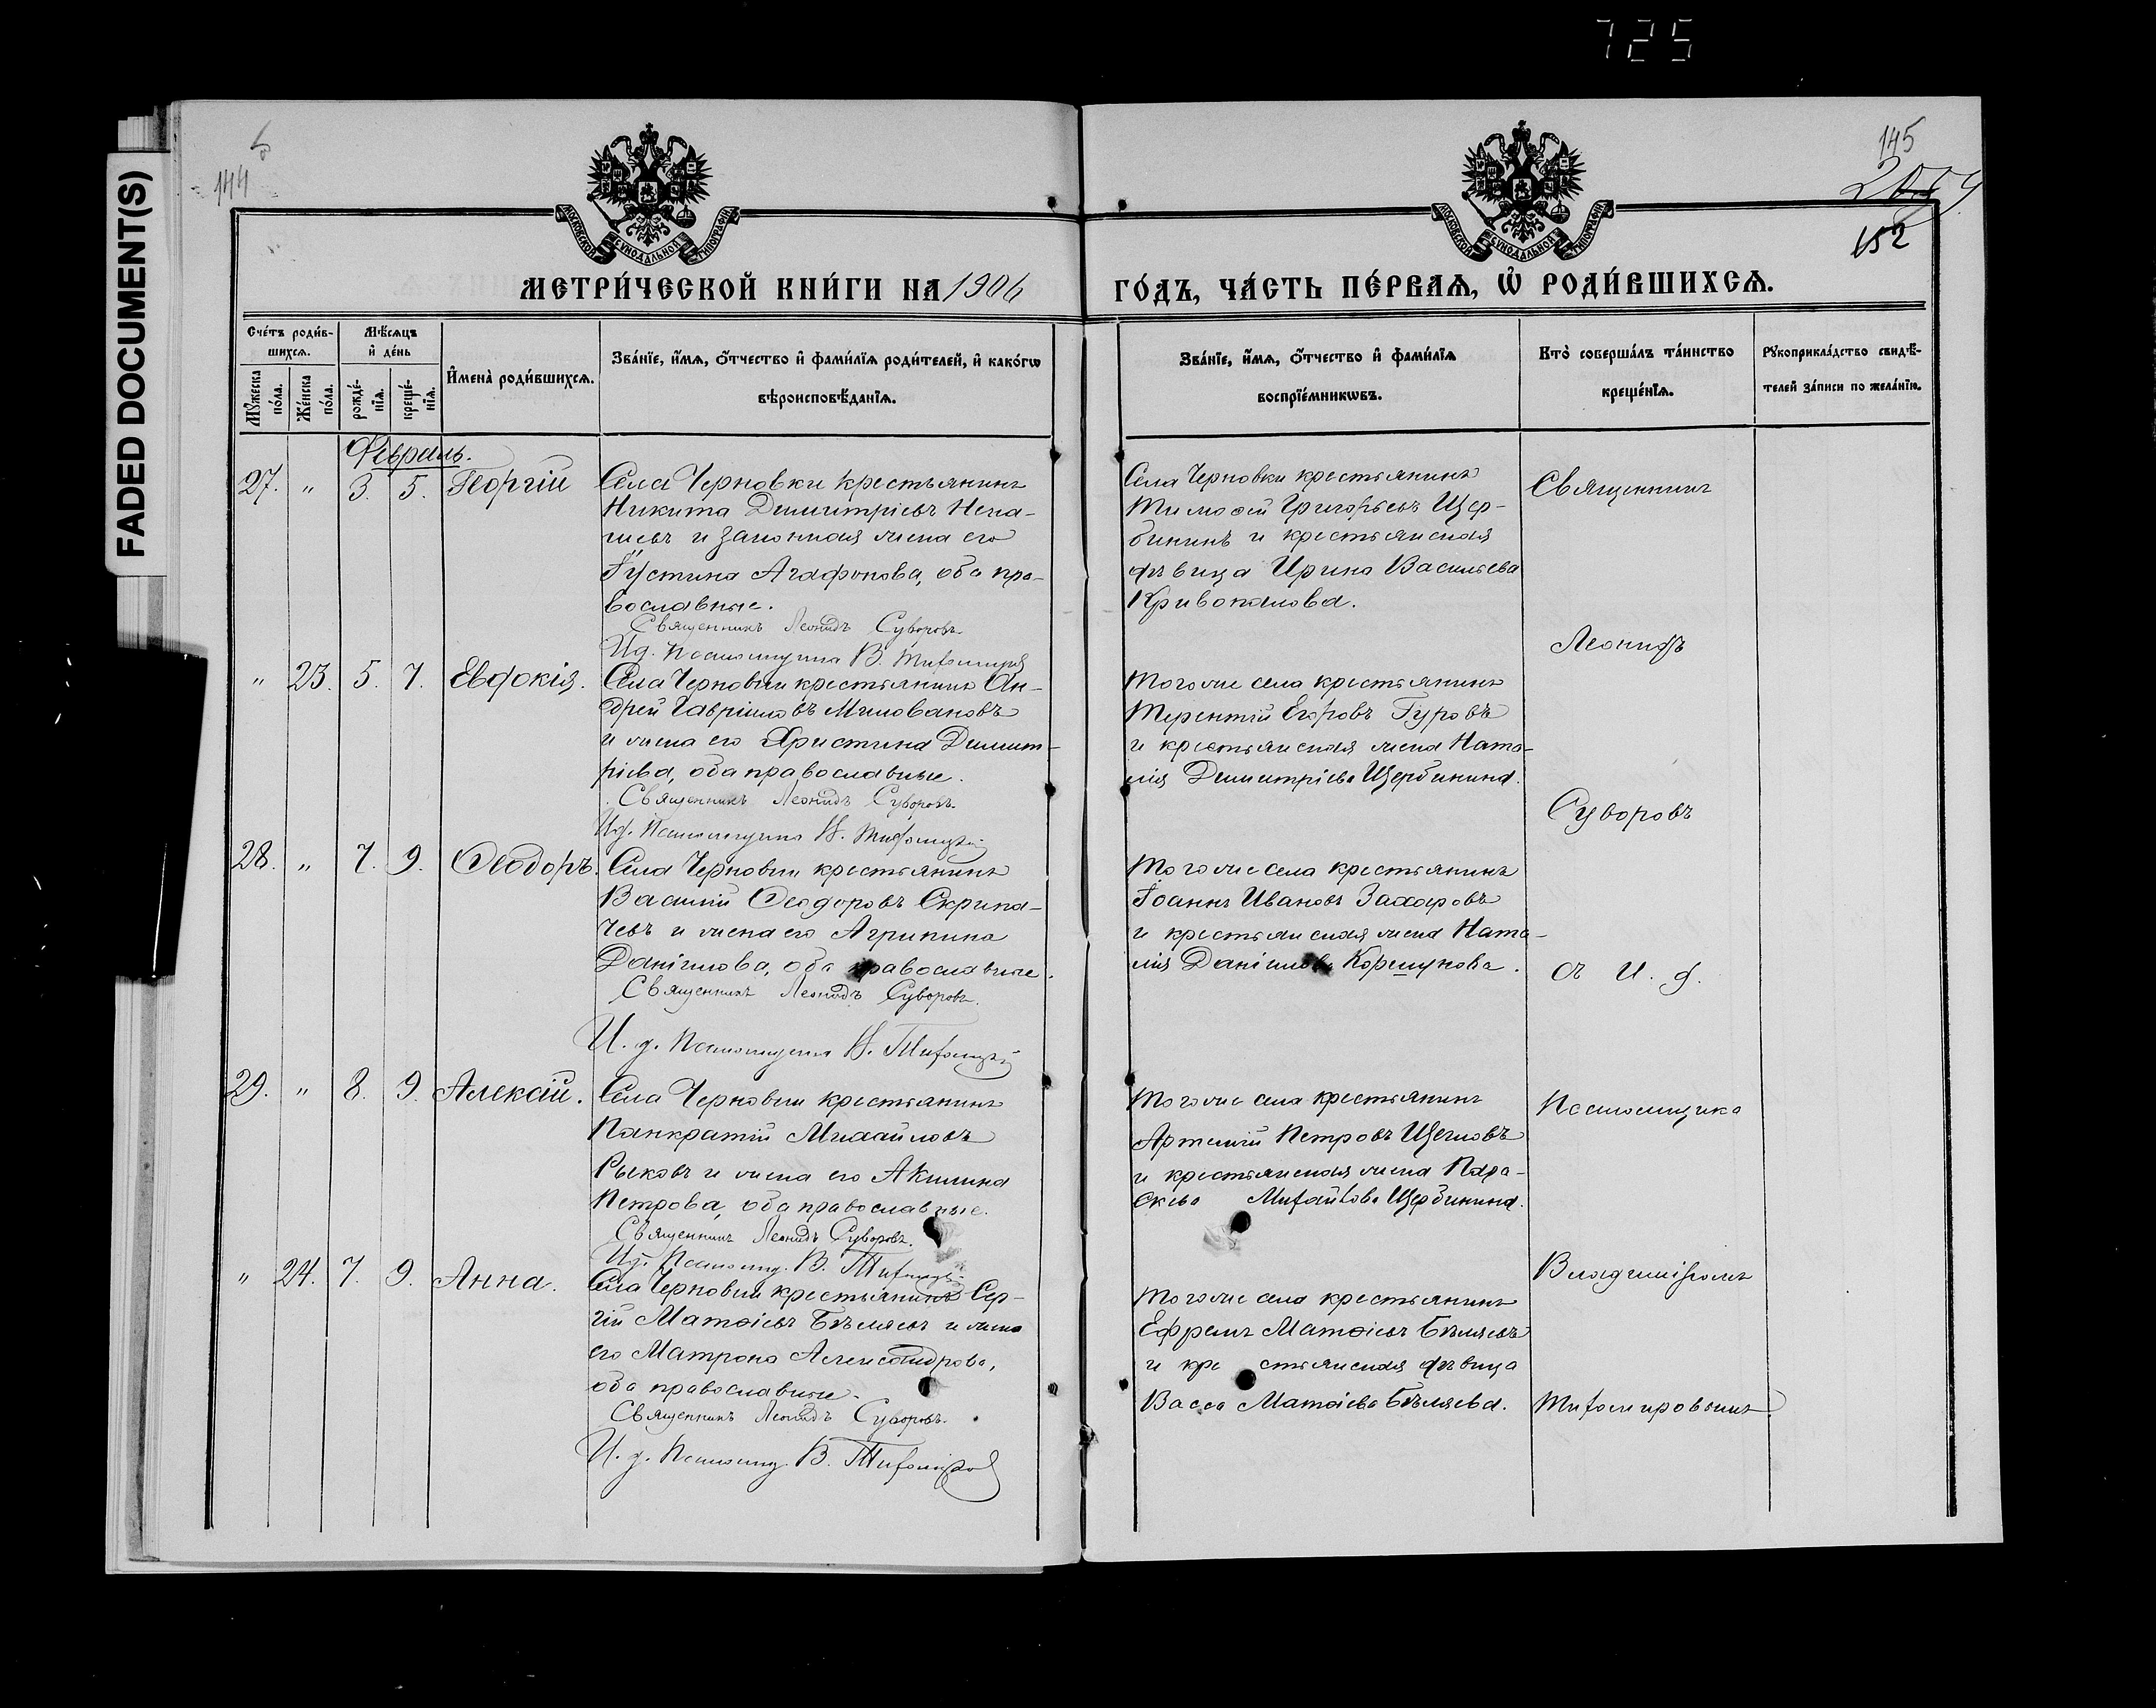 725
FADED DOCUMENT(S)
144
145
152
МОСКОВСКОЙ СУНОДАЛЬНОЙ ТИПОГРАФІИ
МОСКОВСКОЙ СУНОДАЛЬНОЙ ТИПОГРАФІИ
МЕТРИ́ЧЕСКОЙ КНИ́ГИ НА 1906
ГО́ДЪ, ЧА́СТЬ ПЕ́РВАѦ, Ѡ҆ РОДИ́ВШИХСѦ.
Сче́тъ роди́в-
шихсѧ.
Мꙋжеска по́ла.
Же́нска по́ла.
Мѣ́сѧцъ
и҆ де́нь
рожде́-
нїѧ.
креще́-
нїѧ.
И҆мена̀ роди́вшихсѧ.
Зва́нїе, и҆́мѧ, ѻ҆́тчество и҆ фами́лїѧ роди́телей, и҆ како́гѡ
вѣроисповѣ́данїѧ.
Зва́нїе, и҆́мѧ, ѻ҆́тчество и҆ фами́лїѧ
воспрїе́мникѡвъ.
Кто̀ соверша́лъ та́инство
креще́нїѧ.
Рꙋкоприкла́дство свидѣ́-
телей за́писи по жела́нїю.
Февраль.
27. " 3. 5. Георгій
Села Черновки крестьянинъ
Никита Димитріевъ Непа-
и законная жена его
Іустина Агафонова, оба пра-
вославные.
Священникъ Леонидъ Суворовъ.
И.д. Псаломщика В.
Села Черновки крестьянинъ
Тимофей Григорьевъ Щер-
бининъ и крестьянская
дѣвица Ирина Васильева
Кривопалова.
Священникъ
Леонидъ
" 23. 5. 7. Евдокія.
Села Черновки крестьянинъ Ан-
дрей Гавріиловъ Миловановъ
и жена его Христина Димит-
ріева, оба православные.
Священникъ Леонидъ Суворовъ.
И.д. Псаломщика В.
Того же села крестьянинъ
Терентій Егоровъ Гуровъ
и крестьянская жена Ната-
лія Димитріева Щербинина.
Суворовъ
28. " 7. 9. Ѳеодоръ.
Села Черновки крестьянинъ
Василій Ѳеодоровъ Скрипа-
чевъ и жена его Агрипина
Даніилова, оба православные.
Священникъ Леонидъ Суворовъ.
И. д. Псаломщика В.
Того же села крестьянинъ
Іоаннъ Ивановъ Захаровъ
и крестьянская жена Ната-
лія Даніилова Коршунова.
съ И. д.
29. " 8. 9. Алексій.
Села Черновки крестьянинъ
Панкратій Михайловъ
Рыковъ и жена его Акилина
Петрова, оба православные.
Священникъ Леонидъ Суворовъ.
И.д. Псаломщ. В.
Того же села крестьянинъ
Артемій Петровъ Щегловъ
и крестьянская жена Пара-
скева Михайлова Щербинина.
Псаломщика
Владиміромъ
" 24. 7. 9. Анна.
Села Черновки крестьянинъ Сер-
гій Матѳіевъ Бѣляевъ и жена
его Матрона Александрова,
оба православные.
Священникъ Леонидъ Суворовъ.
И. д. Псаломщ. В.
Того же села крестьянинъ
Ефремъ Матѳіевъ Бѣляевъ
и крестьянская дѣвица
Васса Матѳіева Бѣляева.
Тихомировымъ